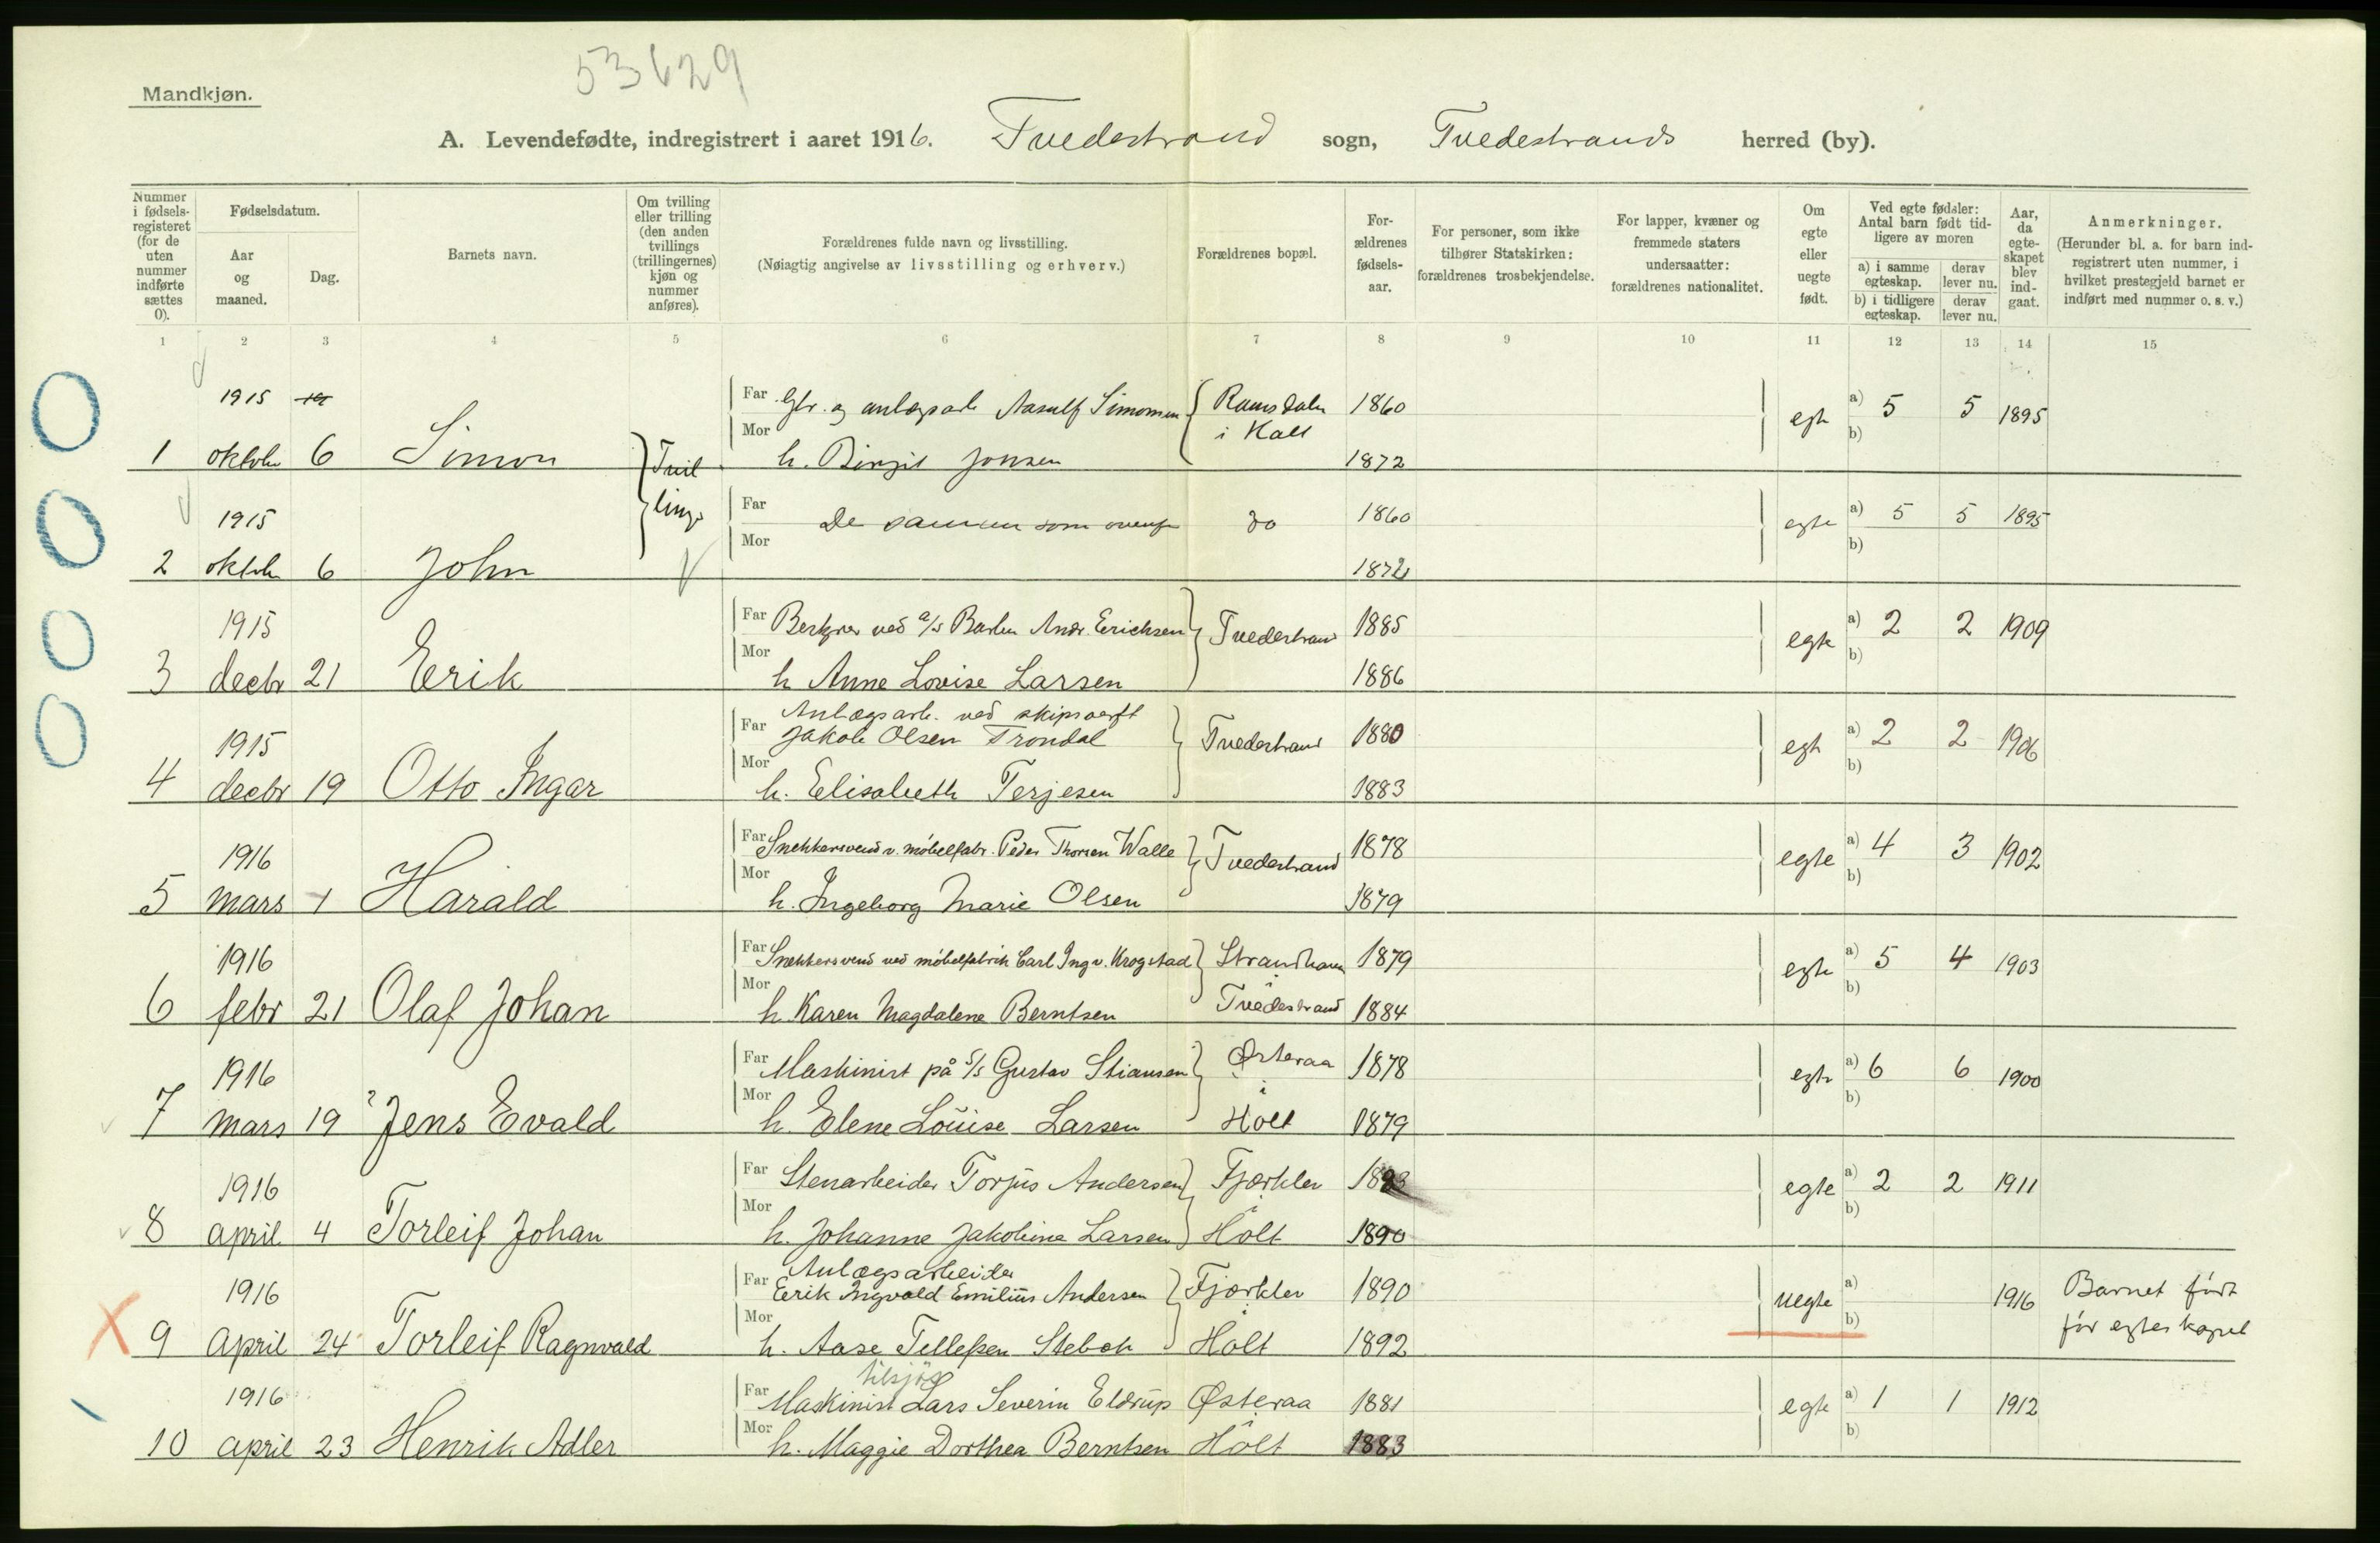 53629
Mandkjøn.
A. Levendefødte, indregistrert i aaret 1916. Tvedestrand sogn, Tvedestrands herred (by).
Nummer i fødsels-registeret (for de uten nummer indførte sættes 0).
Fødselsdatum.
Aar og maaned.
Dag.
Barnets navn.
Om tvilling eller trilling (den anden tvillings (trillingernes) kjøn og nummer anføres).
Forældrenes fulde navn og livsstilling.
(Nøiagtig angivelse av livsstilling og erhverv.)
Forældrenes bopæl.
For-ældrenes fødsels-aar.
For personer, som ikke tilhører Statskirken: forældrenes trosbekjendelse.
For lapper, kvæner og fremmede staters undersaatter: forældrenes nationalitet.
Om egte eller uegte født.
Ved egte fødsler: Antal barn født tid-ligere av moren
a) i samme egteskap.
derav lever nu.
b) i tidligere egteskap.
derav lever nu.
Aar, da egte-skapet blev ind-gaat.
Anmerkninger.
(Herunder bl. a. for barn ind-registrert uten nummer, i hvilket prestegjeld barnet er indført med nummer o. s. v.)
1 2 3 4 5 6 7 8 9 10 11 12 13 14 15
1915 Far Gbr. og anlægsarb Aasulf Simonsen Ramsdalen 1860 egte a) 5 5 1895
Mor i Holt b)
1 oktober 6 Simon Tvil h. Birgit Jonsen 1872
linger
1915 Far De samme som ovenf do 1860 egte a) 5 5 1895
Mor b)
2 oktober 6 John 1872
1915 Far ved a/s Andr. Erichsen Tvedestrand 1885 egte a) 2 2 1909
Mor b)
3 decbr 21 Erik h Anne Lovise Larsen 1886
Anlægsarb. ved skipsverft
1915 Far Jakob Olsen Trondal Tvedestrand 1880 egte a) 2 2 1906
Mor b)
4 decbr 19 Otto Ingar h. Elisabeth Terjesen 1883
1916 Far Snekkersvend v. møbelfabr. Peder Thorsen Walle Tvedestrand 1878 egte a) 4 3 1902
Mor b)
5 mars 1 Harald h. Ingeborg Marie Olsen 1879
1916 Far Snekkersvend ved møbelfabrik Carl Ingv. Krogstad Strandhaven 1879 egte a) 5 4 1903
Mor b)
6 febr 21 Olaf Johan h. Karen Magdalene Berntsen Tvedestrand 1884
1916 Far Maskinist på S/S Gustav Stiansen Østeraa 1878 egte a) 6 6 1900
Mor i b)
7 mars 19 Jens Evald h. Elene Louise Larsen Holt 1879
1916 Far Stenarbeider Torjus Andersen Fjærklev egte a) 2 2 1911
Mor i b)
8 april 4 Torleif Johan h. Johanne Jakobine Larsen Holt 1890
Anlægsarbeider
1916 Far Erik Ingvald Emilius Andersen Fjærklev 1890 uegte a) 1916 Barnet født
Mor i b) før egteskapet
9 april 24 Torleif Ragnvald h. Aase Tellefsen Stebok Holt 1892
tilsjøs
1916 Far Maskinist Lars Severin Eldrup Østeraa 1881 egte a) 1 1 1912
Mor i b)
10 april 23 Henrik Adler h. Maggie Dorthea Berntsen Holt 1883